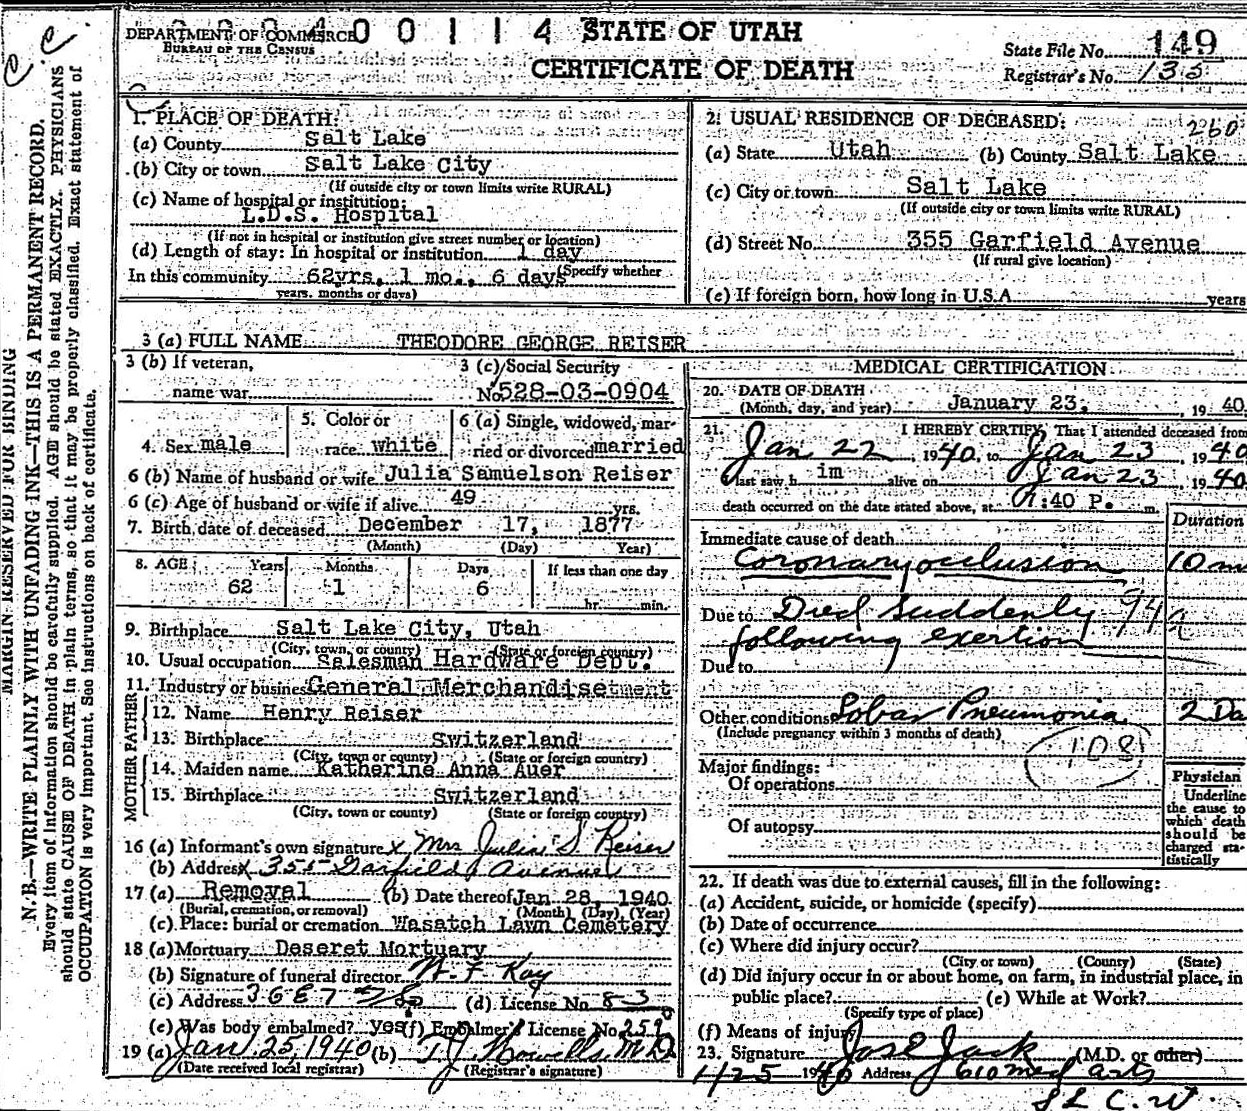 DEPARTMENT OF COMMERCE 0 0 1 1 4 STATE OF UTAH
BUREAU OF THE CENSUS
CERTIFICATE OF DEATH
State File No. 149
Registrar's No. 135
MARGIN RESERVED FOR BINDING
N. B.—WRITE PLAINLY WITH UNFADING INK—THIS IS A PERMANENT RECORD.
Every item of information should be carefully supplied. AGE should be stated EXACTLY. PHYSICIANS
should state CAUSE OF DEATH in plain terms, so that it may be properly classified. Exact statement of
OCCUPATION is very important. See instructions on back of certificate.
1. PLACE OF DEATH:
(a) County Salt Lake
(b) City or town Salt Lake City
(If outside city or town limits write RURAL)
(c) Name of hospital or institution:
L.D.S. Hospital
(If not in hospital or institution give street number or location)
(d) Length of stay: In hospital or institution 1 day
(Specify whether
In this community 62yrs, 1 mo., 6 days
years, months or days)
2. USUAL RESIDENCE OF DECEASED:
260
(a) State Utah (b) County Salt Lake
(c) City or town Salt Lake
(If outside city or town limits write RURAL)
(d) Street No. 355 Garfield Avenue
(If rural give location)
(e) If foreign born, how long in U.S.A. years
3 (a) FULL NAME THEODORE GEORGE REISER
3 (b) If veteran,
name war
3 (c) Social Security
No. 528-03-0904
4. Sex male
5. Color or
race white
6 (a) Single, widowed, mar-
ried or divorced married
6 (b) Name of husband or wife Julia Samuelson Reiser
6 (c) Age of husband or wife if alive 49 yrs.
7. Birth date of deceased December 17, 1877
(Month) (Day) (Year)
8. AGE Years Months Days If less than one day
62 1 6
hr. min.
9. Birthplace Salt Lake City, Utah
(City, town, or county) (State or foreign country)
10. Usual occupation Salesman Hardware Dept.
11. Industry or business General Merchandise
FATHER
12. Name Henry Reiser
13. Birthplace Switzerland
(City, town or county) (State or foreign country)
MOTHER
14. Maiden name Katherine Anna Auer
15. Birthplace Switzerland
(City, town or county) (State or foreign country)
16 (a) Informant's own signature x Mrs Julia S. Reiser
(b) Address x 355 Garfield Avenue
17 (a) Removal (b) Date thereof Jan 28, 1940
(Burial, cremation, or removal) (Month) (Day) (Year)
(c) Place: burial or cremation Wasatch Lawn Cemetery
18 (a) Mortuary Deseret Mortuary
(b) Signature of funeral director W. F. Kay
(c) Address 36 E 7 So (d) License No. 83
(e) Was body embalmed? yes (f) Embalmer's License No. 259
19 (a) Jan. 25, 1940 (b) T. J. Howells M.D.
(Date received local registrar) (Registrar's signature)
MEDICAL CERTIFICATION
20. DATE OF DEATH
(Month, day, and year) January 23, 1940
21. I HEREBY CERTIFY, That I attended deceased from
Jan 22, 1940, to Jan 23, 1940
I last saw h im alive on Jan 23, 1940
death occurred on the date stated above, at :40 P. m.
Duration
Immediate cause of death
Coronary occlusion 10 m
Due to Died suddenly 94a
following exertion
Due to
Other conditions Lobar Pneumonia 2 Da
(Include pregnancy within 3 months of death)
108
Major findings:
Of operations
Of autopsy
Physician
Underline
the cause to
which death
should be
charged sta-
tistically
22. If death was due to external causes, fill in the following:
(a) Accident, suicide, or homicide (specify)
(b) Date of occurrence
(c) Where did injury occur?
(City or town) (County) (State)
(d) Did injury occur in or about home, on farm, in industrial place, in
public place? (e) While at Work?
(Specify type of place)
(f) Means of injury
23. Signature Jos E Jack (M.D. or other)
1/25 1940 Address 610 Med Arts
S L C. Ut.